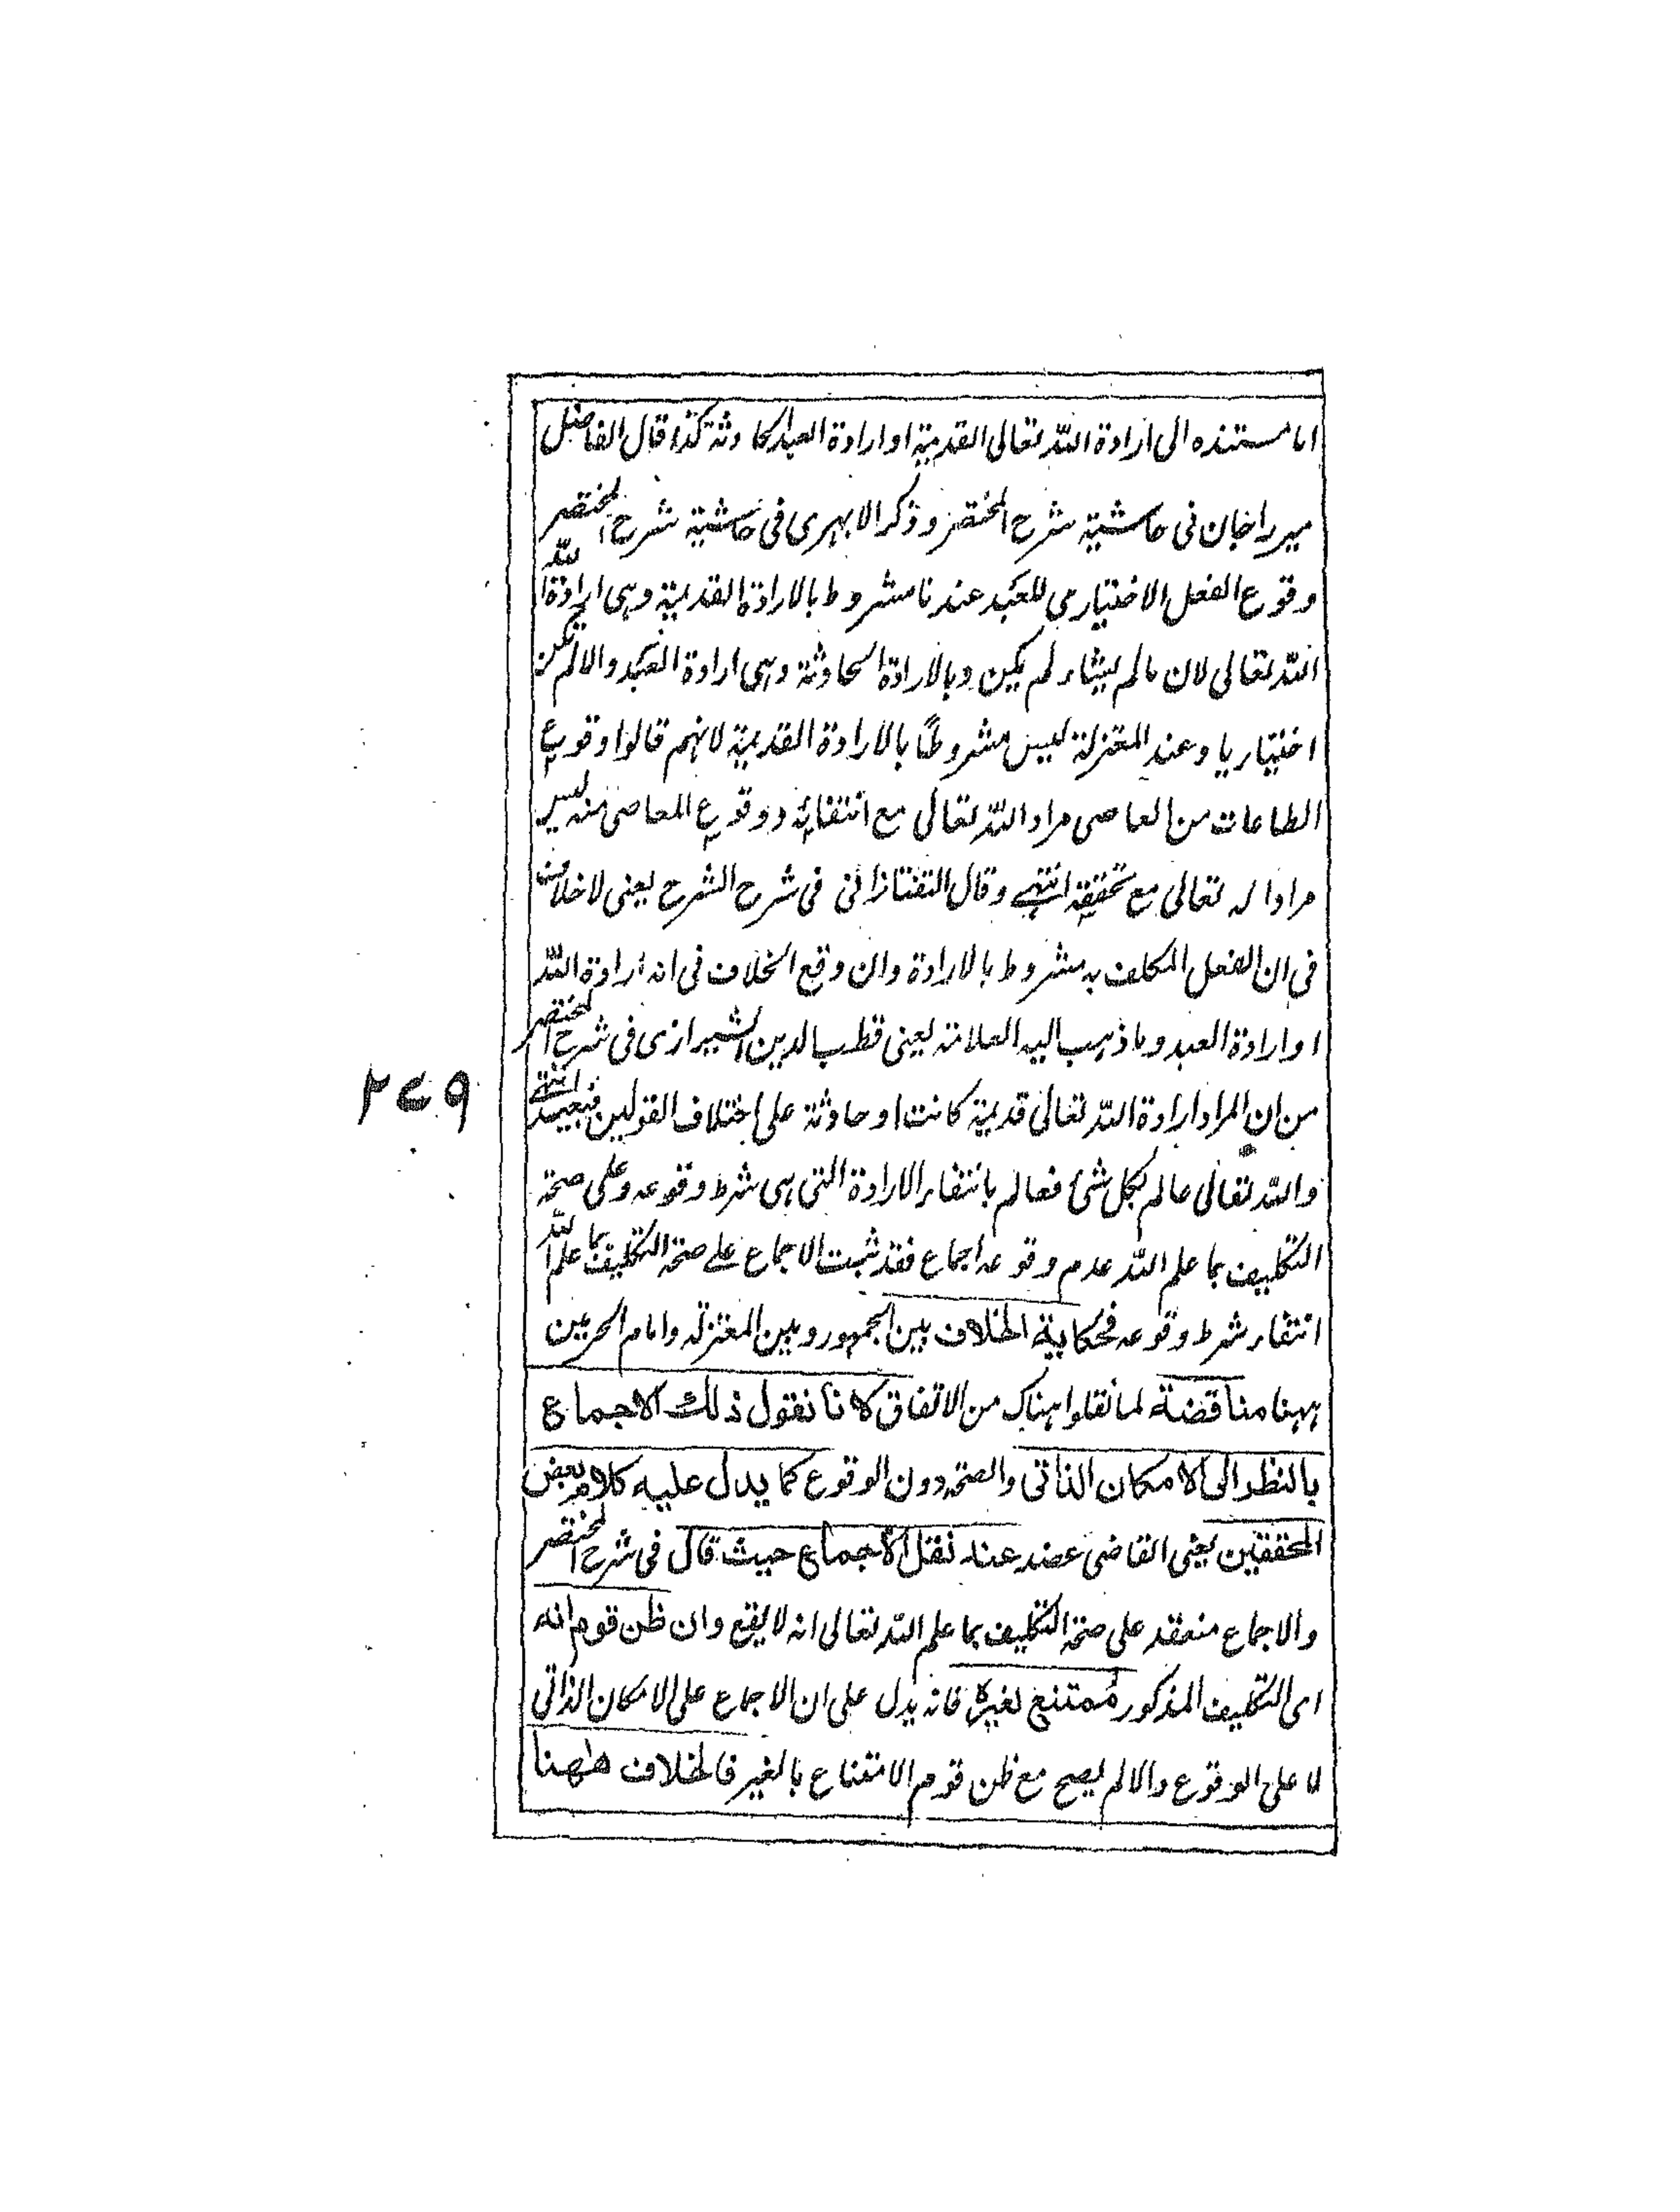 اما مستنده الى ارادة الله تعالى القديمة او ارادة العبد الحادثة كذا قال الفاضل
ميرزاجان فى حاشية شرح المختصر و ذكر الابهرى فى حاشية شرح المختصر
وقوع الفعل الاختيارى للعبد عندنا مشروط بالارادة القديمة وهى ارادة الله
الله تعالى لان ما لم يشاء لم يكن وبالارادة الحادثة وهى ارادة العبد والا لم يكن
اختياريا وعند المعتزلة ليس مشروطا بالارادة القديمة لانهم قالوا وقوع
الطاعات من العاصى مراد الله تعالى مع انتفائه ووقوع المعاصى منه ليس
مرادا له تعالى مع تحققه انتهى وقال التفتازانى فى شرح الشرح يعنى لا خلاف
فى ان الفعل المكلف به مشروط بالارادة وان وقع الخلاف فى انه ارادة الله
او ارادة العبد وما ذهب اليه العلامة يعنى قطب الدين الشيرازى فى شرح المختصر
من ان المراد ارادة الله تعالى قديمة كانت او حادثة على اختلاف القولين فبعيد انتهى
والله تعالى عالم بكل شئ فعالم بانتفاء الارادة التى هى شرط وقوعه وعلى صحة
التكليف بما علم الله عدم وقوعه اجماع فقد ثبت الاجماع على صحة التكليف بما علم الله
انتفاء شرط وقوعه فحكاية الخلاف بين الجمهور وبين المعتزلة وامام الحرمين
ههنا مناقضة لما نقلوا هناك من الاتفاق لانا نقول ذلك الاجماع
بالنظر الى الامكان الذاتى والصحة دون الوقوع كما يدل عليه كلام بعض
المحققين يعنى القاضى عضد عند نقل الاجماع حيث قال فى شرح المختصر
والاجماع منعقد على صحة التكليف بما علم الله تعالى انه لا يقع وان ظن قوم انه
اى التكليف المذكور ممتنع لغيره فانه يدل على ان الاجماع على الامكان الذاتى
لا على الوقوع والا لم يصح مع ظن قوم الامتناع بالغير فالخلاف ههنا
۲۷۹